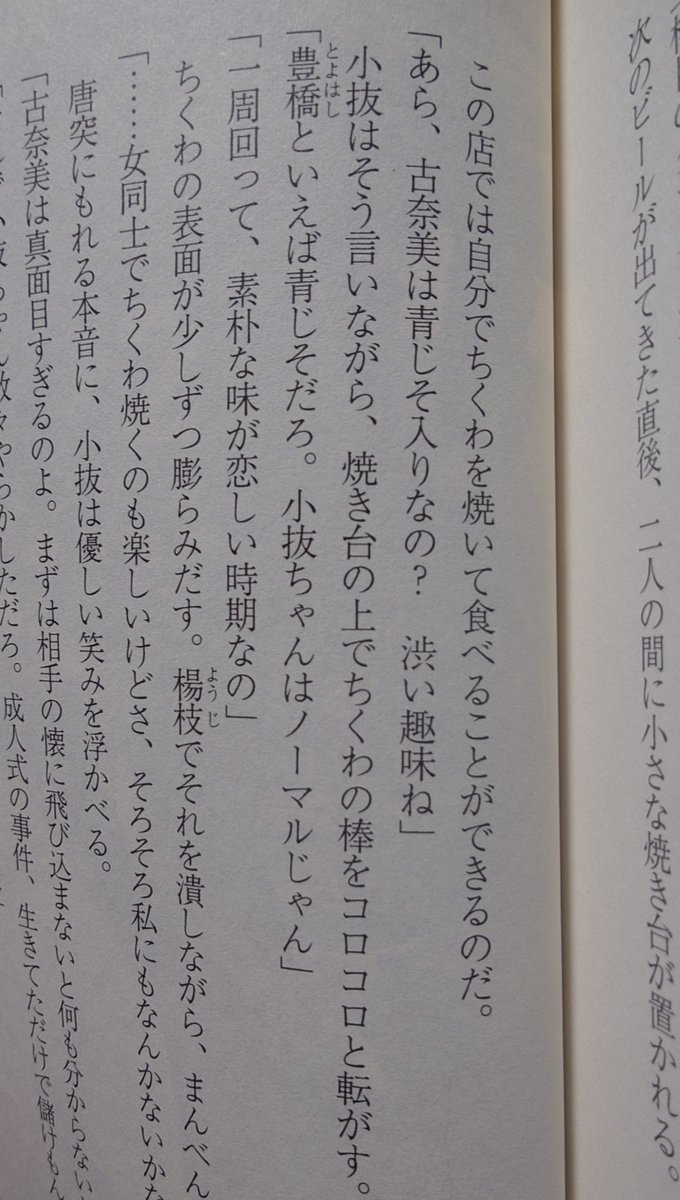 次のビールが出てきた直後、二人の間に小さな焼き台が置かれる。
この店では自分でちくわを焼いて食べることができるのだ。
「あら、古奈美は青じそ入りなの?　渋い趣味ね」
小抜はそう言いながら、焼き台の上でちくわの棒をコロコロと転がす。
「豊橋といえば青じそだろ。小抜ちゃんはノーマルじゃん」
とよはし
「一周回って、素朴な味が恋しい時期なの」
ちくわの表面が少しずつ膨らみだす。楊枝でそれを潰しながら、まんべん
ようじ
「……女同士でちくわ焼くのも楽しいけどさ、そろそろ私にもなんかないかな
唐突にもれる本音に、小抜は優しい笑みを浮かべる。
「古奈美は真面目すぎるのよ。まずは相手の懐に飛び込まないと何も分からない
やらかしただろ。成人式の事件、生きてただけで儲けもん